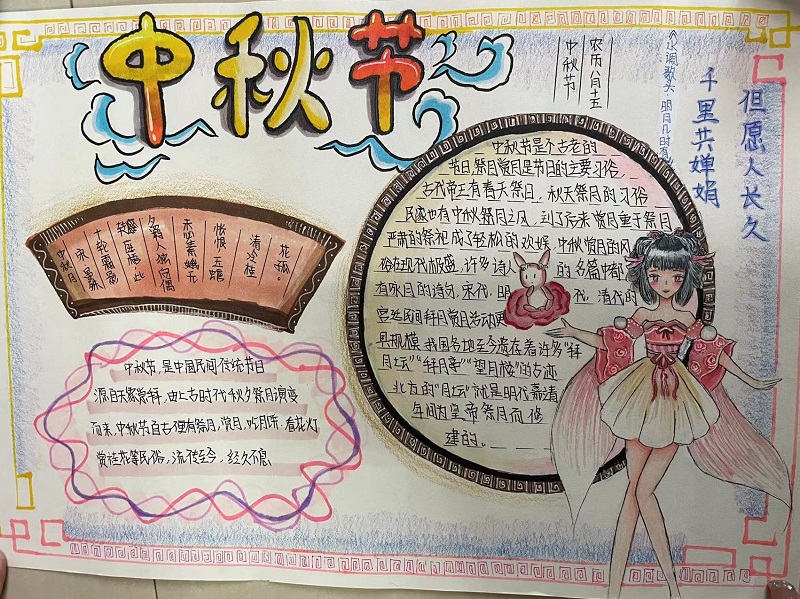 中秋节
农历八月十五
中秋节
《水调歌头·明月几时有》
但愿人长久
千里共婵娟
中秋节是个古老的
节日,祭月赏月是节日的主要习俗,
古代帝王有春天祭日,秋天祭月的习俗
民间也有中秋祭月之风,到了后来赏月重于祭月
严肃的祭祀成了轻松的欢娱 中秋赏月的风
俗在现代极盛,许多诗人的名篇中都
有咏月的诗句,宋代,明代,清代的
宫廷民间拜月赏月活动更
具规模 我国各地至今遗存着许多"拜
月坛""拜月亭""望月楼"的古迹
北方的"月坛"就是明代嘉靖
年间为皇帝祭月而修
建的。
中秋月
十轮霜影
此
多病人
向偶
未必素娥无
怅恨 玉蟾
清冷桂
花孤。
中秋节,是中国民间传统节日
源自天象崇拜,由上古时代秋夕祭月演变
而来,中秋节自古便有祭月,赏月,吃月饼,看花灯
赏桂花等民俗,流传至今,经久不息